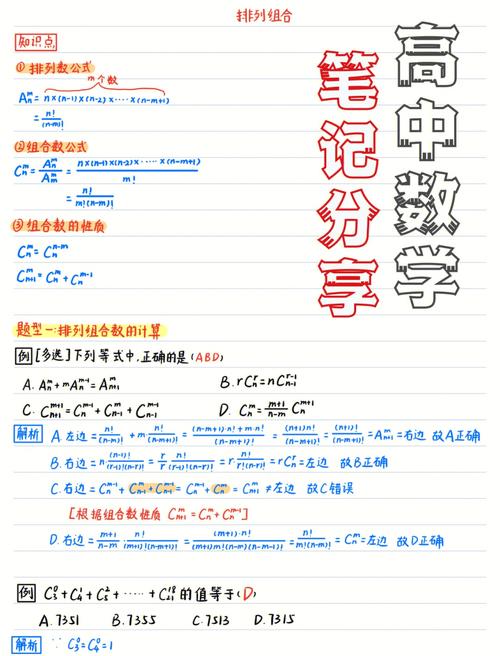 排列组合
高中数学
笔记分享
知识点
① 排列数公式
m个数
Aₙᵐ = n×(n-1)×(n-2)×·····×(n-m+1)
= n!/(n-m)!
②组合数公式
Cₙᵐ = Aₙᵐ/Aₘᵐ = n×(n-1)×(n-2)×·····×(n-m+1)/m!
= n!/m!(n-m)!
③组合数的性质
Cₙᵐ = Cₙⁿ⁻ᵐ
Cₙ₊₁ᵐ = Cₙᵐ + Cₙᵐ⁻¹
题型一:排列组合数的计算
例 [多选] 下列等式中,正确的是 (ABD)
A. Aₙᵐ + mAₙᵐ⁻¹ = Aₙ₊₁ᵐ B. rCₙʳ = nCₙ₋₁ʳ⁻¹
C. Cₙ₊₁ᵐ = Cₙᵐ + Cₙ₋₁ᵐ + Cₙ₋₁ᵐ⁻¹ D. Cₙᵐ = m+1/n-m Cₙᵐ⁺¹
解析 A 左边 = n!/(n-m)! + m n!/(n-m+1)! = (n-m+1)·n!+m·n!/(n-m+1)! = (n+1)n!/(n-m+1)! = (n+1)!/(n-m+1)! = Aₙ₊₁ᵐ = 右边 故A正确
B. 右边 = n (n-1)!/(r-1)!(n-r)! = r/r n!/(r-1)!(n-r)! = r· n!/r!(n-r)! = rCₙʳ = 左边 故B正确
C. 右边 = Cₙᵐ + Cₙ₋₁ᵐ + Cₙ₋₁ᵐ⁻¹ = Cₙᵐ + Cₙᵐ = Cₙ₊₁ᵐ ≠ 左边 故C错误
[根据组合数性质 Cₙ₊₁ᵐ = Cₙᵐ + Cₙᵐ⁻¹]
D. 右边 = m+1/n-m · n!/(m+1)!(n-m-1)! = (m+1)·n!/(m+1)m!(n-m)(n-m-1)! = n!/m!(n-m)! = Cₙᵐ = 左边 故D正确
例 C₃⁰ + C₄¹ + C₅² + ····· + C₂₁¹⁸ 的值等于 (D)
A. 7351 B. 7355 C. 7513 D. 7315
解析 ∵ C₃⁰ = C₄⁰ = 1